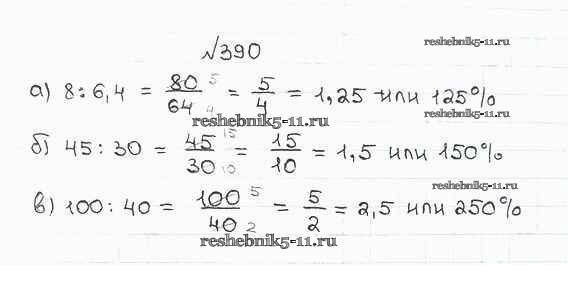 №390
reshebnik5-11.ru
а) 8 : 6,4 = 80/64 5 4 = 5/4 = 1,25 или 125%
reshebnik5-11.ru
reshebnik5-11.ru
б) 45 : 30 = 45/30 15 10 = 15/10 = 1,5 или 150%
reshebnik5-11.ru
в) 100 : 40 = 100/40 5 2 = 5/2 = 2,5 или 250%
reshebnik5-11.ru